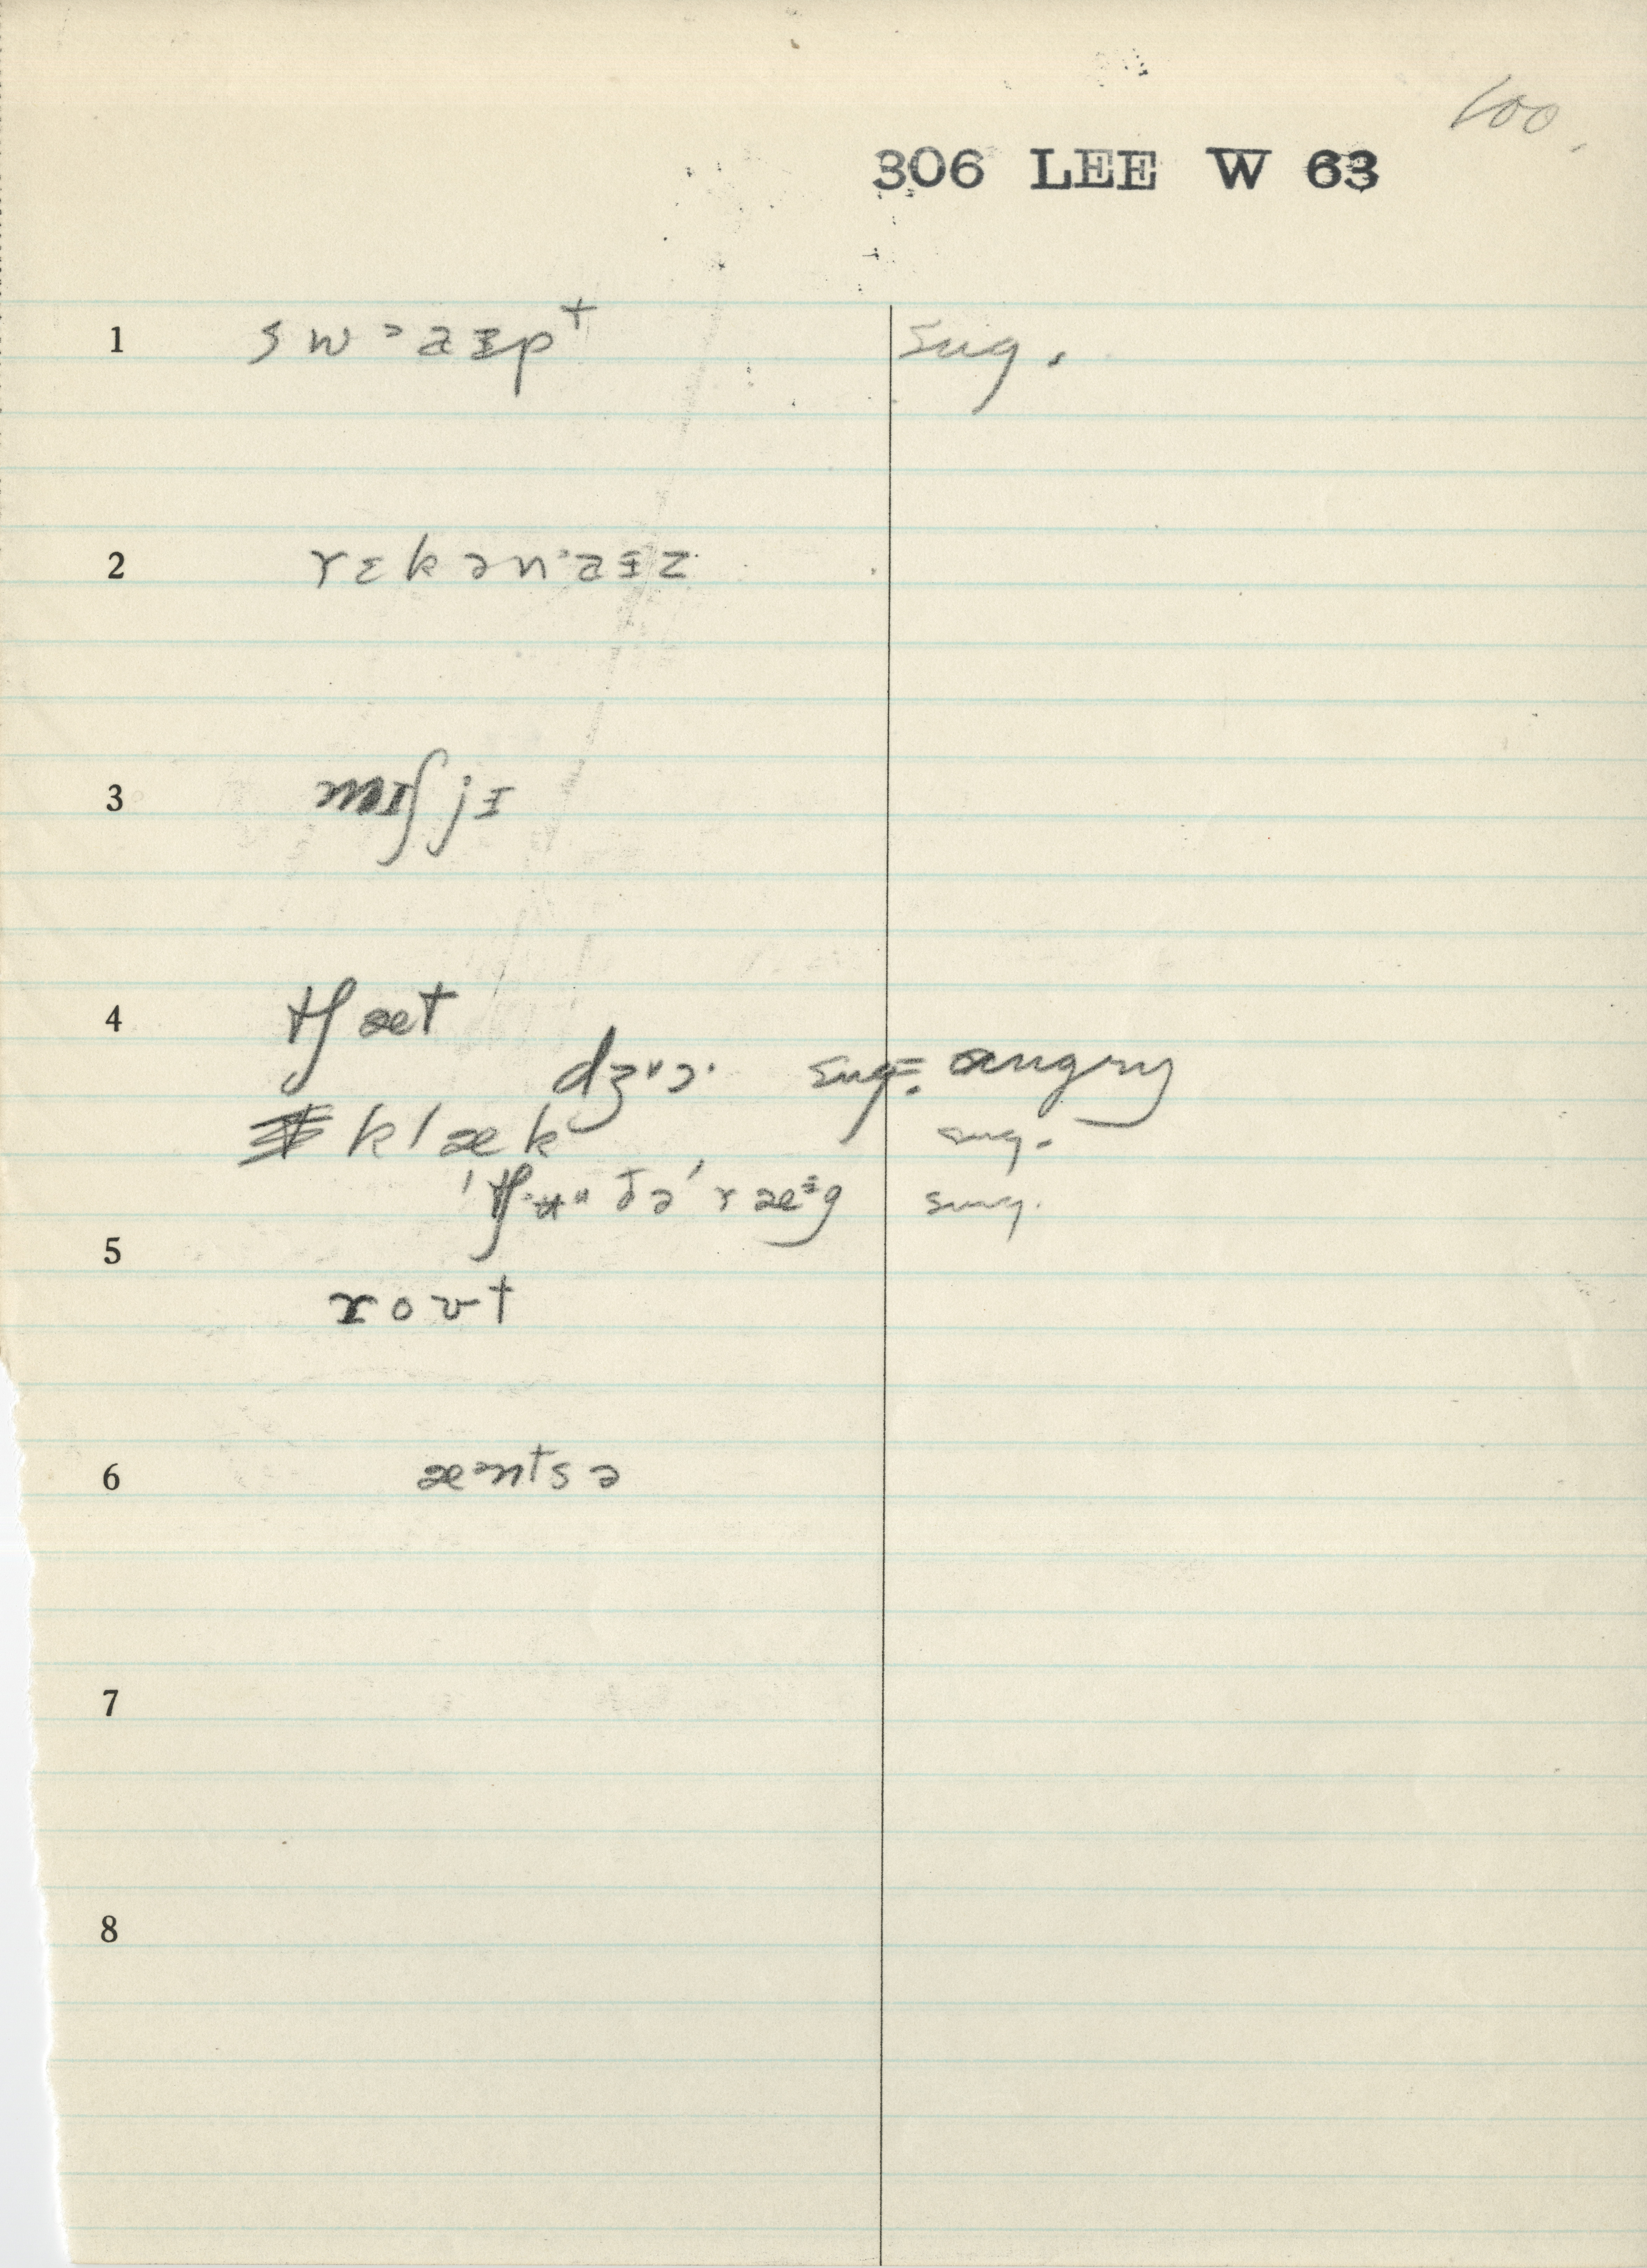 100.
306 LEE W 63
1 sw ᵊaɪ̵pᵗ sug.
2 rɛkənᵊaɪ̵z
3 mɪʃjɪ̵
4 tʃæt
dʒᵘɔ· sug. = angry
klæk sug.
ðə ˈræᶤg sug.
5 roʊt
6 æᵊntsə
7
8